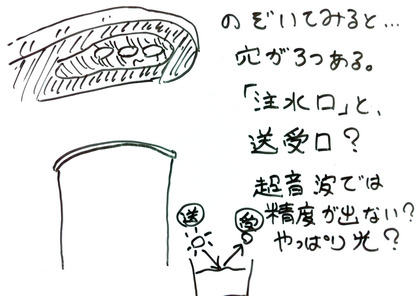 のぞいてみると…
穴が3つある。
「注水口」と、
送受口？
超音波では
精度が出ない？
やっぱり光？
送
受